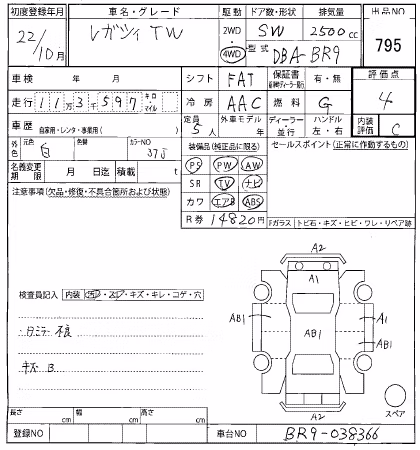 初度登録年月 車名・グレード 駆動 ドア数・形状 排気量 出品NO
22/10月 レガシィ TW 2WD 4WD SW 2500cc 795
型式 DBA-BR9
車検 年 月 シフト FAT 保証書 有・無 評価点
走行 113597 キロ・マイル 冷房 AAC 燃料 G 4
車歴 自家用・レンタ・事業用( ) 定員 5人 外車モデル 年 ディーラー 並行 ハンドル 左・右 内装評価 C
外色 元色 白 色替 カラーNO 37J 装備品(純正品に限る) セールスポイント(正常に作動するもの)
名義変更期限 月 日迄 積載 t PS PW AW
注意事項(欠品・修復・不具合箇所および状態) SR TV ナビ
カワ エアB ABS
R券 14820円 Fガラス トビ石・キズ・ヒビ・ワレ・リペア跡
A2
A1
検査員記入 内装 汚・スレ・キズ・キレ・コゲ・穴
AB1 AB1 A1
ミラー不良 AB1
キズ B
A2 スペア
長さ cm 幅 cm 高さ cm
登録NO 車台NO BR9-038366